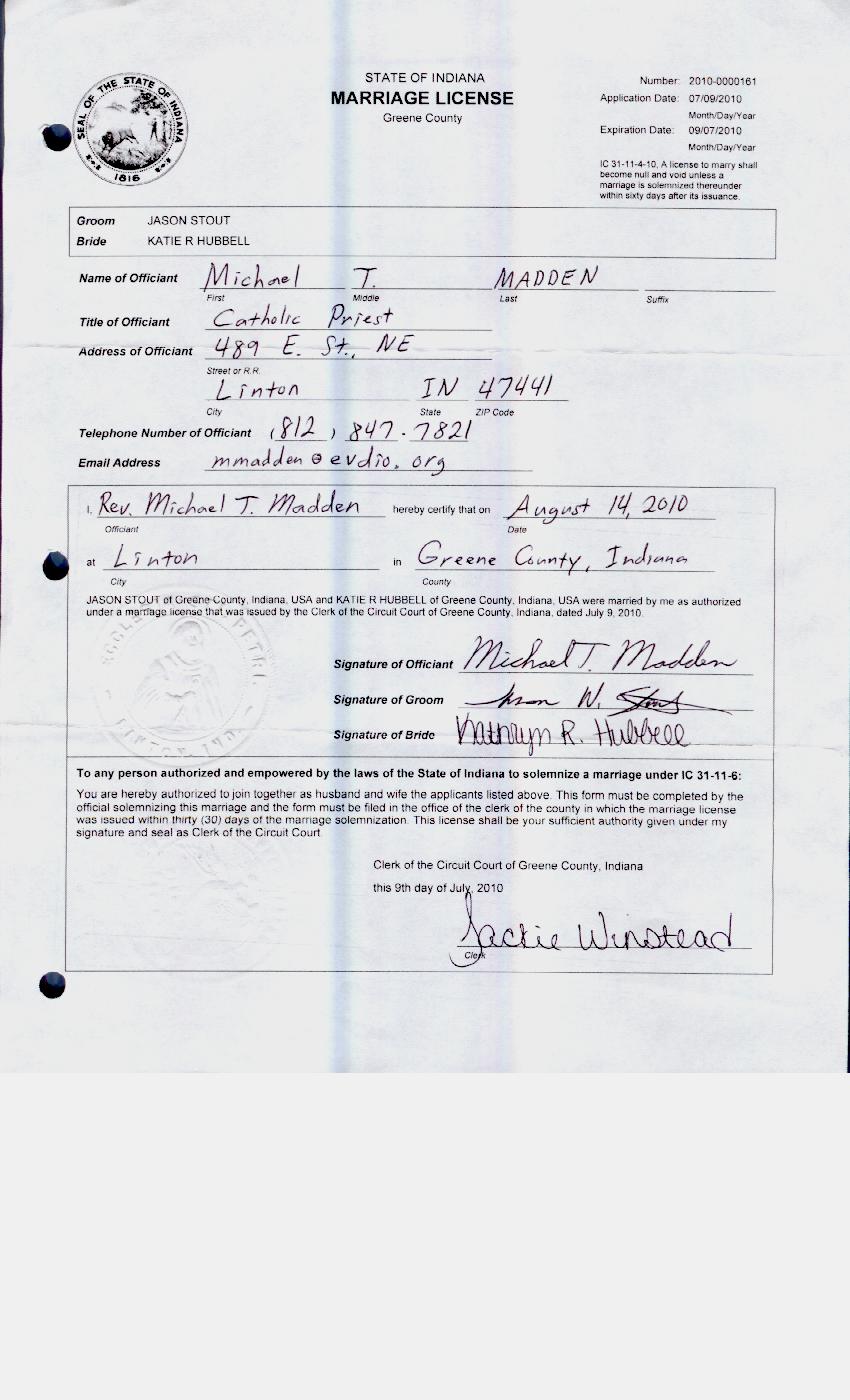 STATE OF INDIANA
MARRIAGE LICENSE
Greene County
SEAL OF THE STATE OF INDIANA
1816
Number: 2010-0000161
Application Date: 07/09/2010
Month/Day/Year
Expiration Date: 09/07/2010
Month/Day/Year
IC 31-11-4-10, A license to marry shall
become null and void unless a
marriage is solemnized thereunder
within sixty days after its issuance.
Groom JASON STOUT
Bride KATIE R HUBBELL
Name of Officiant Michael T. MADDEN
First Middle Last Suffix
Title of Officiant Catholic Priest
Address of Officiant 489 E. St., NE
Street or R.R.
Linton IN 47441
City State ZIP Code
Telephone Number of Officiant (812) 847-7821
Email Address mmadden@evdio.org
I, Rev. Michael T. Madden hereby certify that on August 14, 2010
Officiant Date
at Linton in Greene County, Indiana
City County
JASON STOUT of Greene County, Indiana, USA and KATIE R HUBBELL of Greene County, Indiana, USA were married by me as authorized
under a marriage license that was issued by the Clerk of the Circuit Court of Greene County, Indiana, dated July 9, 2010.
Signature of Officiant Michael T. Madden
Signature of Groom W. Stout
Signature of Bride Kathryn R. Hubbell
LINTON, IND
To any person authorized and empowered by the laws of the State of Indiana to solemnize a marriage under IC 31-11-6:
You are hereby authorized to join together as husband and wife the applicants listed above. This form must be completed by the
official solemnizing this marriage and the form must be filed in the office of the clerk of the county in which the marriage license
was issued within thirty (30) days of the marriage solemnization. This license shall be your sufficient authority given under my
signature and seal as Clerk of the Circuit Court.
Clerk of the Circuit Court of Greene County, Indiana
this 9th day of July, 2010
Jackie Winstead
Clerk